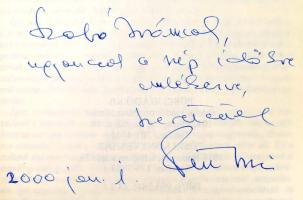 Szabó Ivánnak,
ugyancsak a szép időkre
emlékezve,
szeretettel
2000 jan. 1.